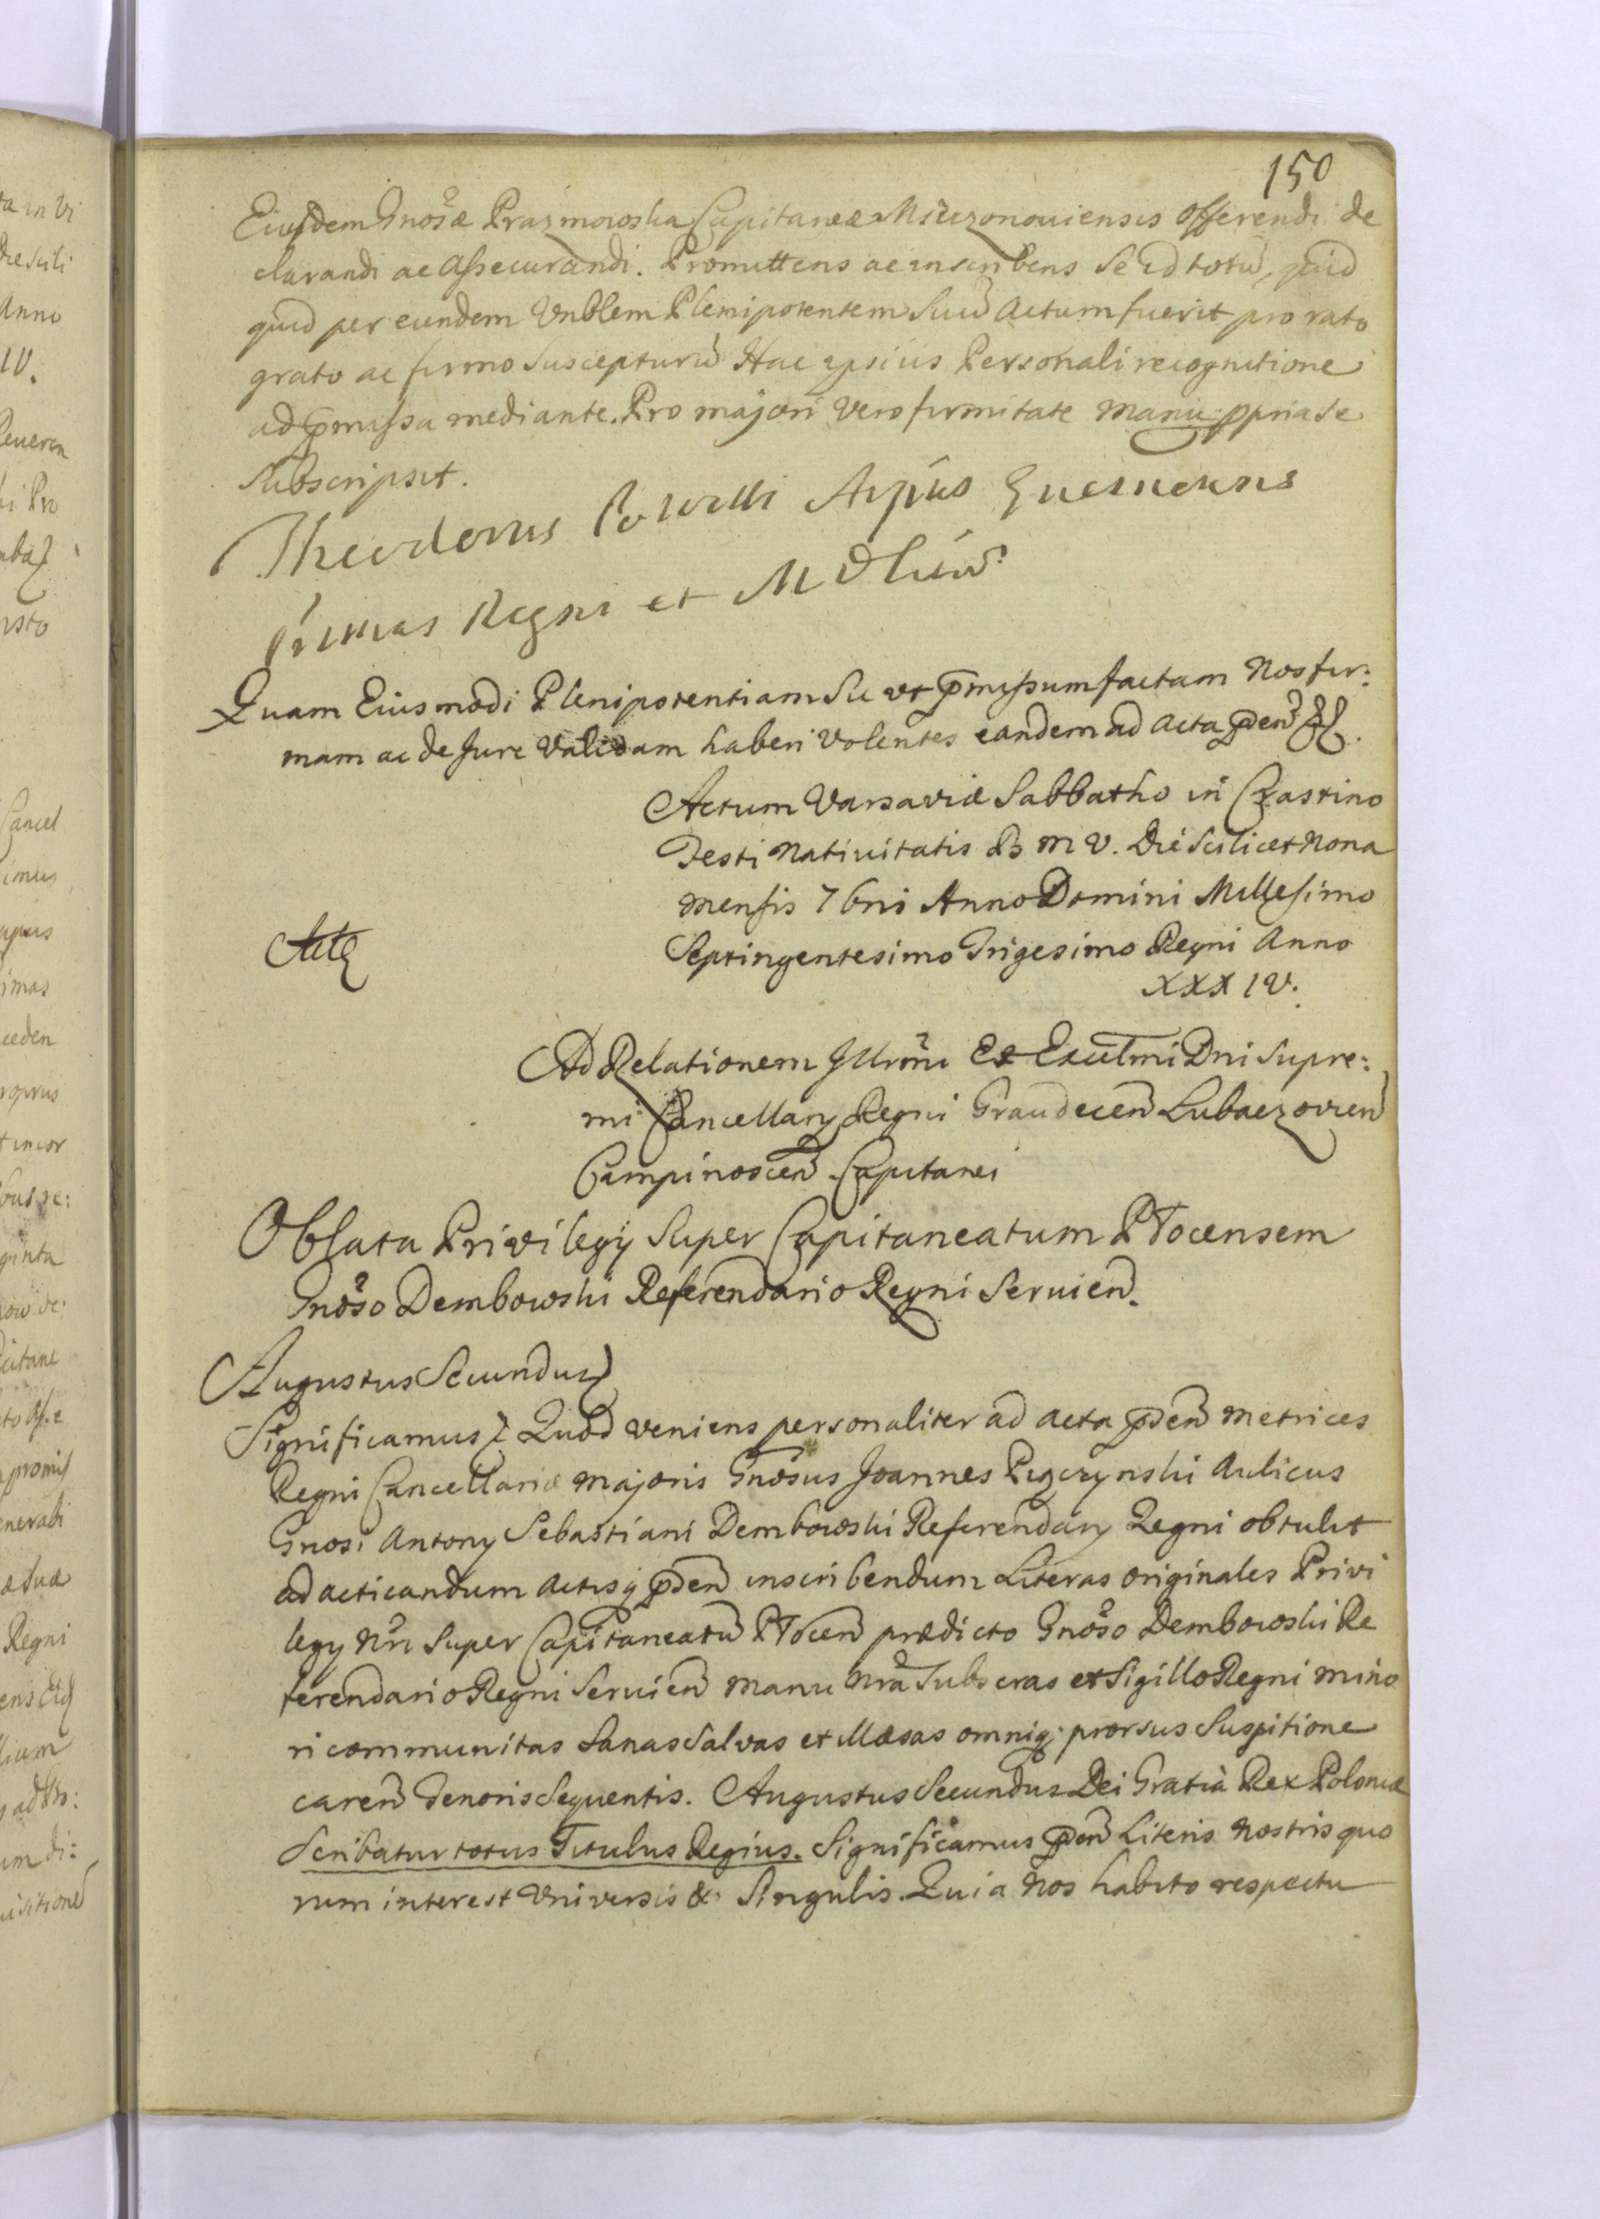 150
Eiusdem Gnosæ Prazmowska Capitaneæ Mszczonouiensis offerendi de
clarandi ac assecurandi. Promittens ac inscribens Se id totu, quid
quid per eundem Vnblem Plenipotentem Suu Actum fuerit pro rato
grato ac firmo Suscepturu Hac ipsius Personali recognitione
ad pmissa mediante. Pro majori vero firmitate manu ppria se
Subscripsit.
Theodorus Potocki Arpus Gnesnensis
Primas Regni et M D Litw.
Quam Eiusmodi Plenipotentiam Sic ut pmissum factam Nos fir:
mam ac de Jure Validam haberi Volentes eandem ad Acta pden
Actum Varsaviæ Sabbatho in Crastino
Festi Nativitatis B M V. Die Scilicet Nona
mensis 7bris Anno Domini Millesimo
Septingentesimo Trigesimo Regni Anno
XXXIV.
Ad Relationem Illrmi Et Excellmi Dni Supre:
mi Cancellarij Regni Graudecen Lubaczovien
Campinoscen Capitanei
Oblata Privilegij Super Capitaneatum Plocensem
Gnoso Dembowski Referendario Regni Seruien.
Augustus Secundus
Significamus Quod veniens personaliter ad acta pden Metrices
Regni Cancellariæ majoris Gnosus Joannes Aulicus
Gnosi Antonij Sebastiani Dembowski Referendarij Regni obtulit
ad acticandum Actisq pden inscribendum Literas originales Privi
legij Nri Super Capitaneatu Plocen prædicto Gnoso Dembowski Re
ferendario Regni Seruien manu Nra Subscras et Sigillo Regni mino
ri communitas Sanas Salvas et illæsas omniq; prorsus Suspitione
caren Tenoris Sequentis. Augustus Secundus Dei Gratia Rex Poloniæ
Scribatur totus Titulus Regius. Significamus pden Literis Nostris quo
rum interest Vniversis & Singulis. Quia Nos habito respectu